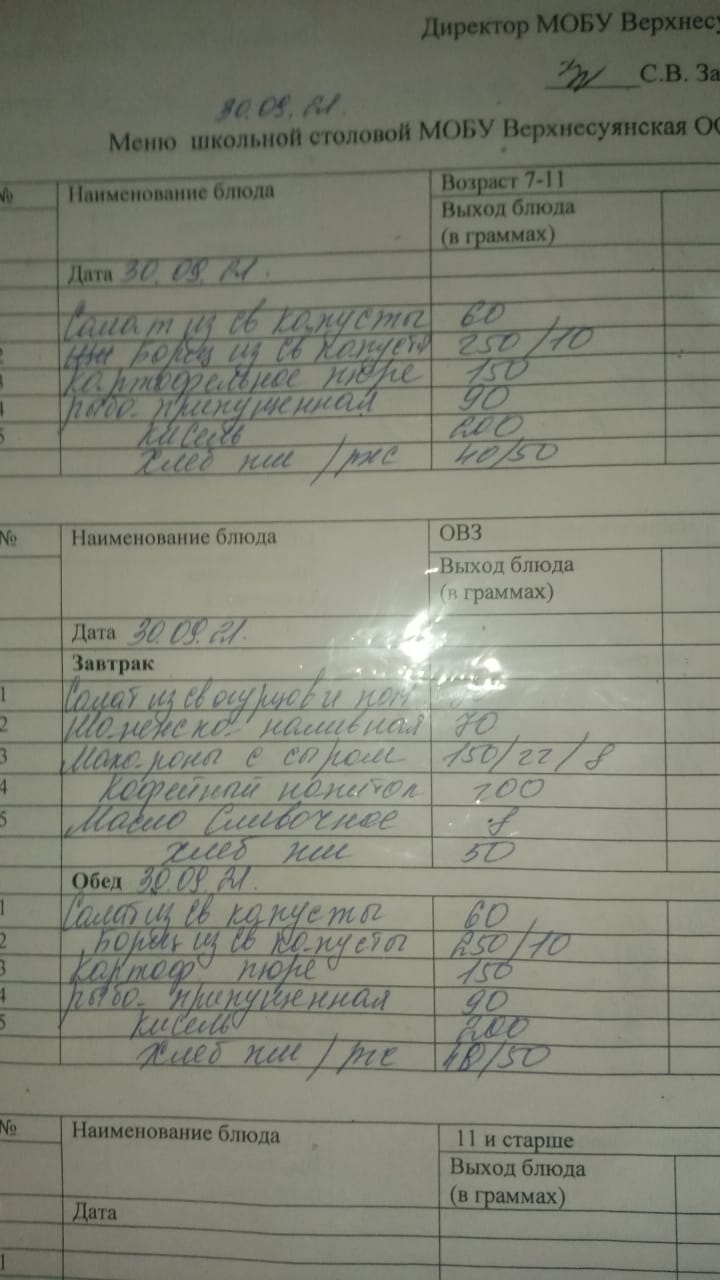 Директор МОБУ Верхнесу
С.В. За
30.09.21.
Меню школьной столовой МОБУ Верхнесуянская ОО
№ Наименование блюда Возраст 7-11
Выход блюда
(в граммах)
Дата 30.09.21.
Салат из св капусты 60
2 Борщ из св капусты 250/10
3 Картофельное пюре 150
4 рыба припущенная 90
5 кисель 200
Хлеб пш/рж 40/50
№ Наименование блюда ОВЗ
Выход блюда
(в граммах)
Дата 30.09.21.
Завтрак
1 Салат из св огурцов и пом
2 наливная 70
3 Макароны с сыром 150/22/8
4 Кофейный напиток 200
5 Масло Сливочное 8
хлеб пш 50
Обед 30.09.21.
1 Салат из св капусты 60
2 Борщ из св капусты 250/10
3 Картоф пюре 150
4 рыба припущенная 90
5 Кисель 200
Хлеб пш/рж 40/50
№ Наименование блюда 11 и старше
Выход блюда
(в граммах)
Дата
1